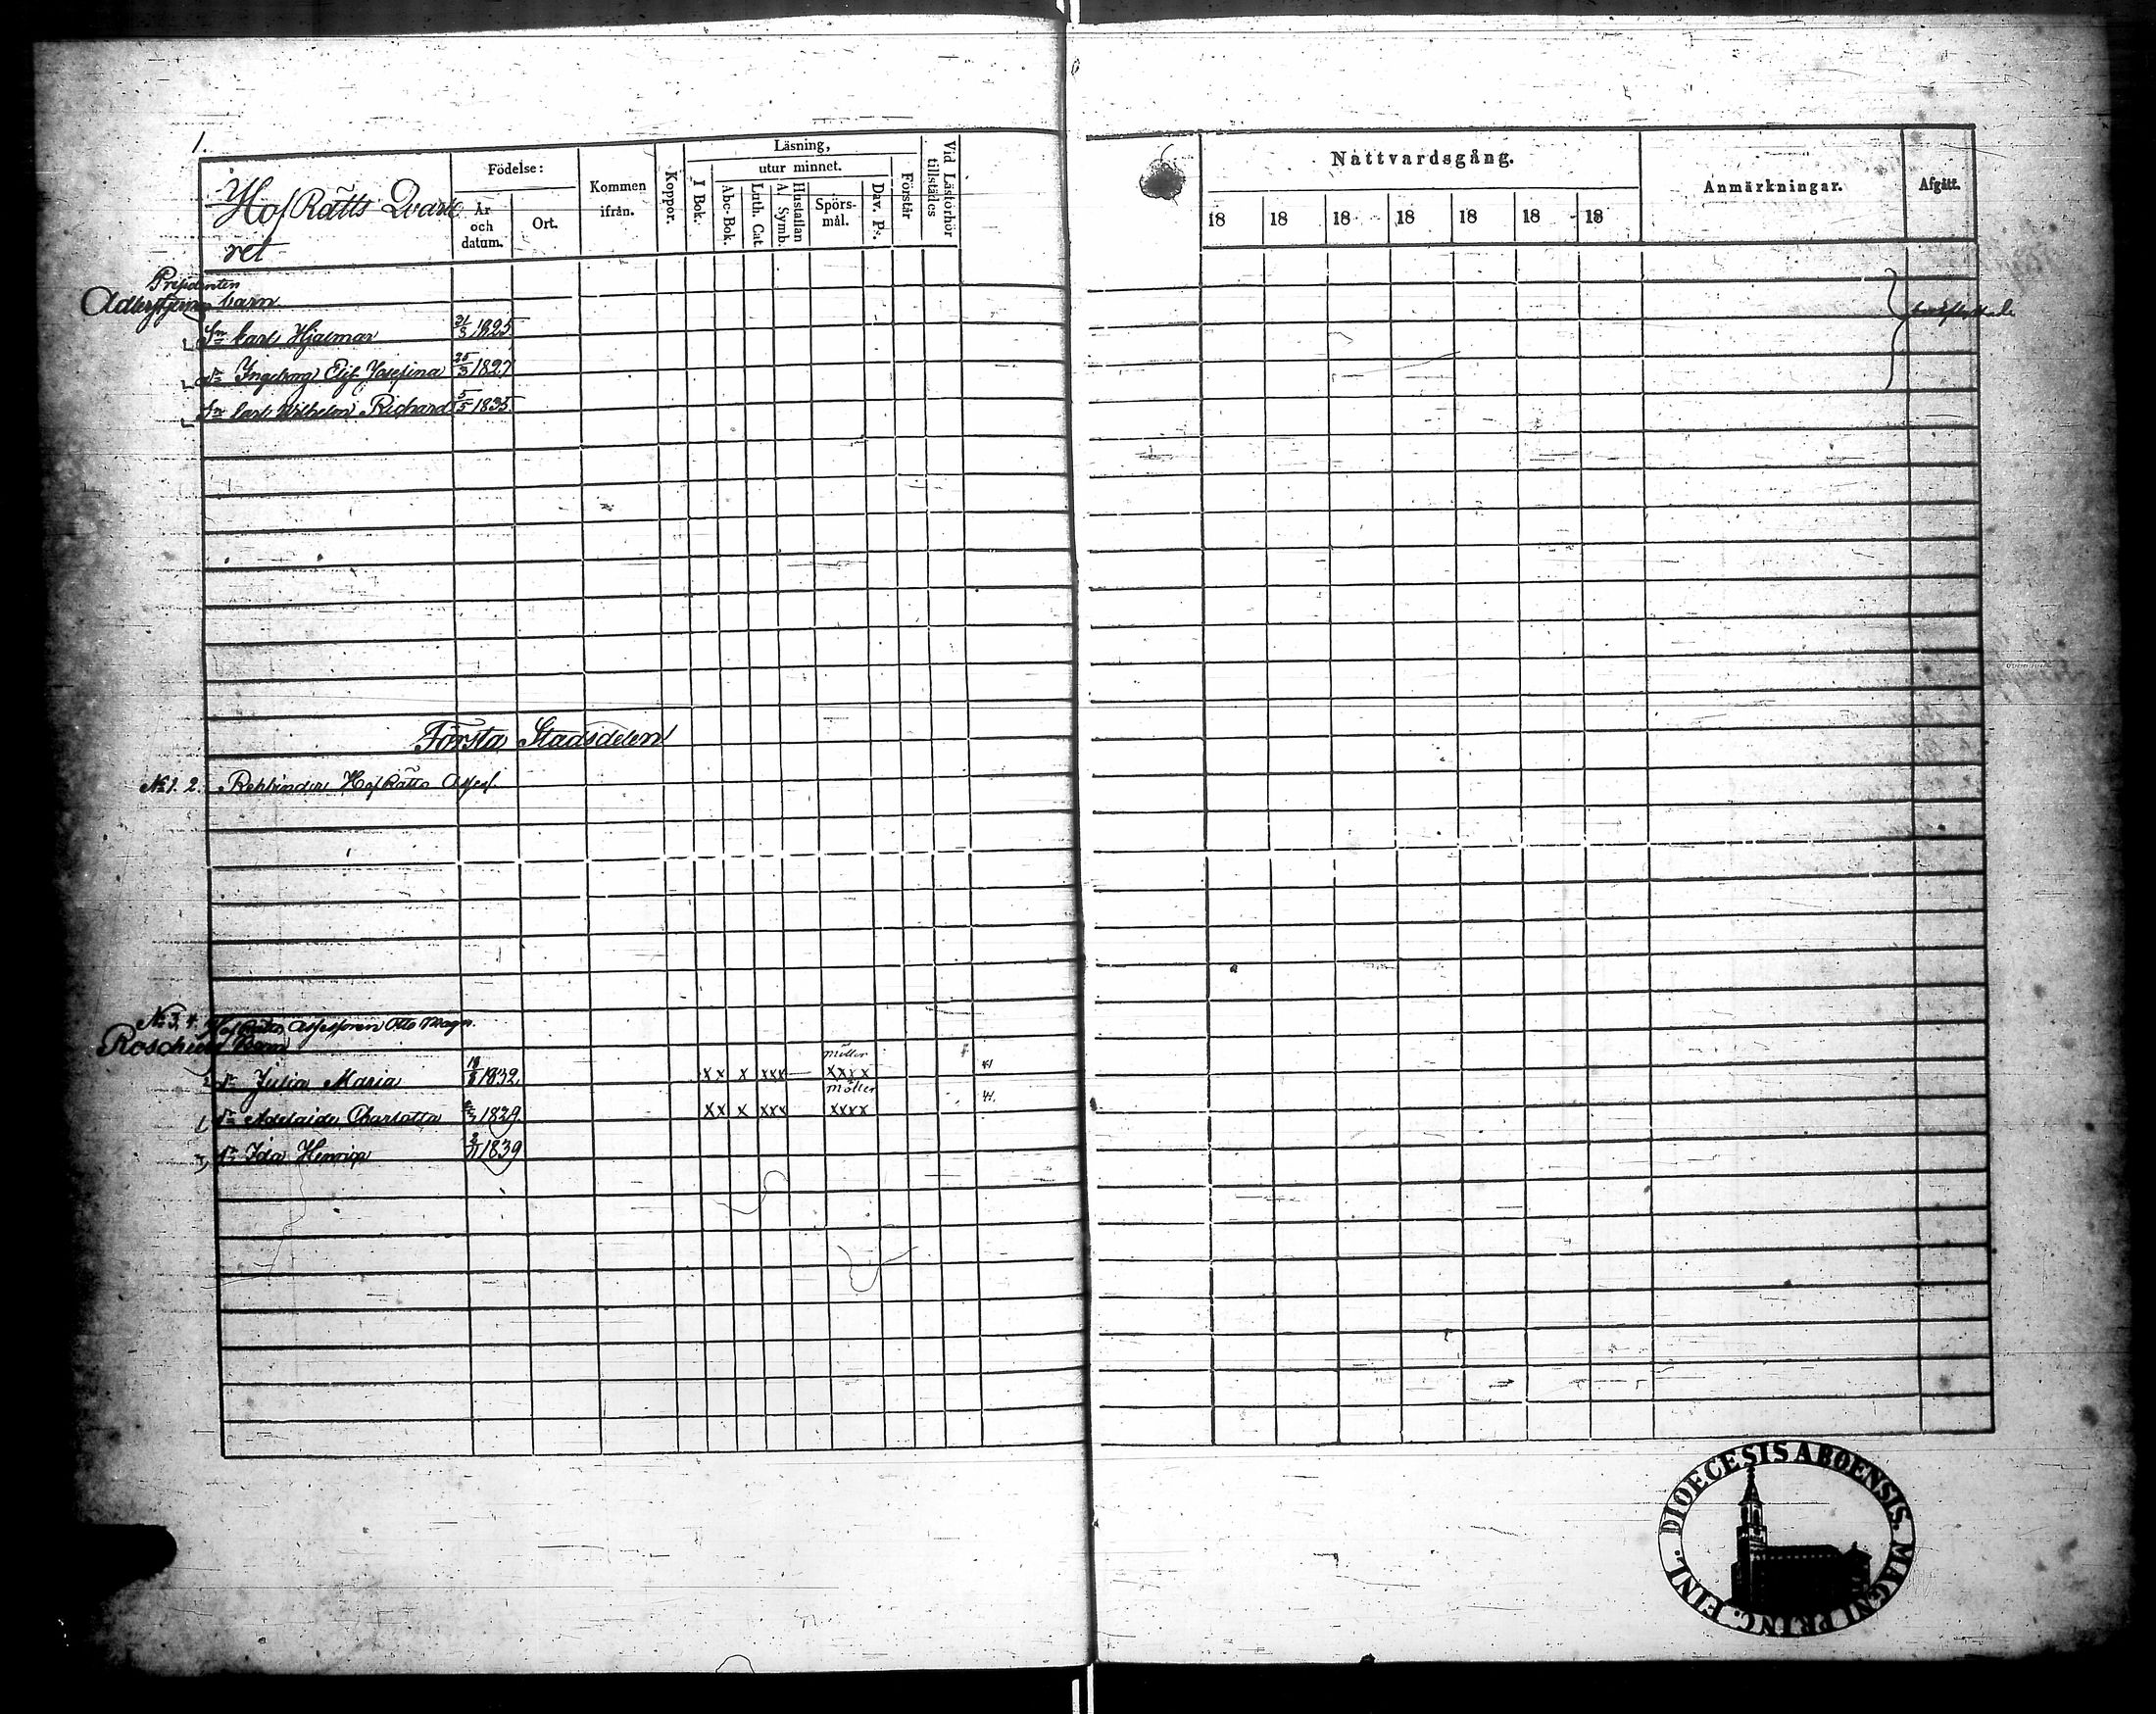 1.
Hof Rätts Qvarte
ret
Födelse:
År och datum.
Ort.
Kommen ifrån.
Koppor.
Läsning,
utur minnet.
I Bok.
Abc-Bok.
Luth. Cat.
Hustaflan A. Symb.
Spörsmål.
Dav. Ps.
Förstår
Vid Läsförhör tillstädes
Nattvardsgång.
18 18 18 18 18 18 18
Anmärkningar.
Afgått.
Presidenten
barn
Sn Carl Hjalmar 31/3 1825
Dr Ingeborg Elis. Josefina 25/3 1827
Sn Carl Wilhelm Richard 5/5 1835
bortflyttade
Första Stadsdelen
No 1. 2. Rehbinder Hof Rätts Assess.
No 3, 4. Hof Rätts Assessoren Otto Magn.
Roschier Barn
möller
2 Dr Julia Maria 18/8 1832. xx x xxx xxxx 41
möller
1 Dr Adelaide Charlotta 1829. xx x xxx xxxx 41.
3, Dr Ida Henrica 2/11 1839
DIOECESIS ABOENSIS. MAGNI PRINC. FINL.